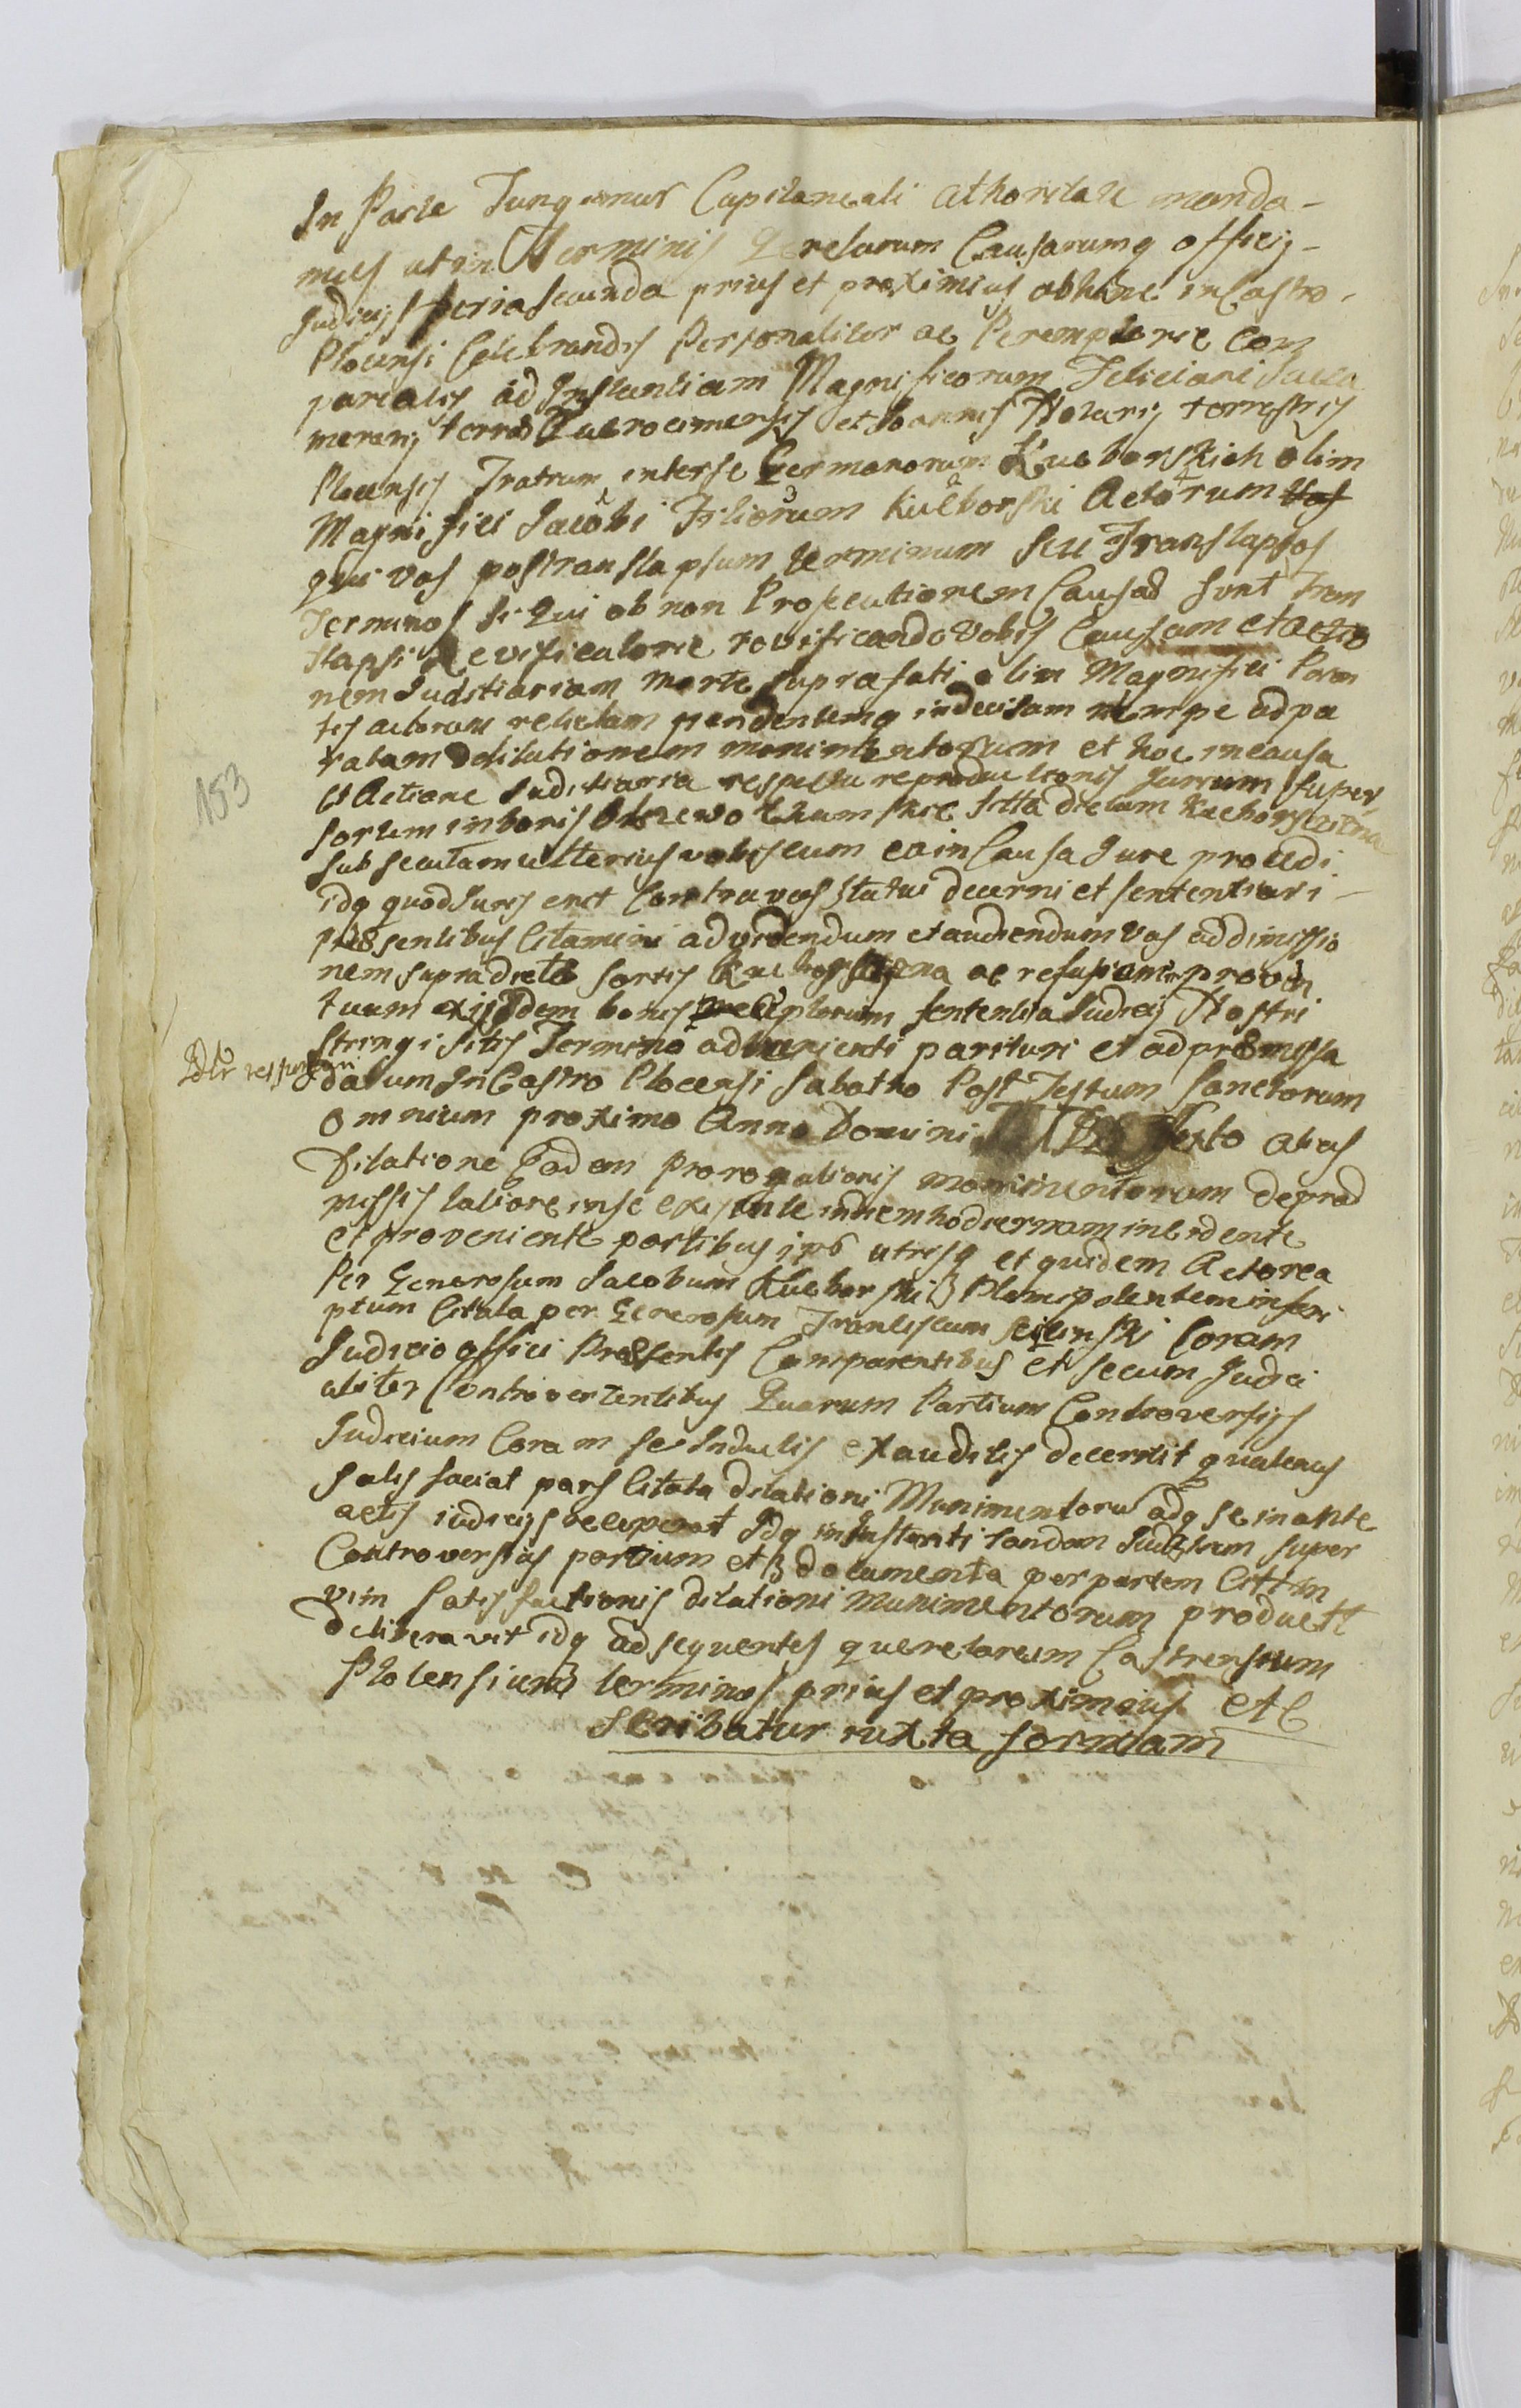 In Parte Jungimur Capitaneali athoritate manda-
mus ut in Terminis Qerelarum Causarumq officij-
Judicijs feria Secunda prius et proximius abhinc in Castro-
Plocensi Celebrandis Personaliter ac Peremptorie Com
pareatis ad Instantiam Magnificorum Feliciani Succa
merarij terræ et Joannis Notarij terrestris
Plocensis Fratrum interse Germanorum Kucborskich olim
Magnifici Jacobi Filiorum Kucborski Actorum
qui vos postranslapsum terminum seu Translapsos
Terminos si qui ob non Prosecutionem Causæ sunt Trans
lapsi Revificatorie revificando Vobis Causam et Actio
nem Juditiariam morte suprafati olim Magnifici Paren
tis actorum relictam pendentemq indecisam nempe ad pa
ratam dilationem monimentorum et hoc in causa
et Actione Juditiaria respectu reproductionis Jurium super
sortem in bonis dictam
subsecutam ulterius vobiscum ea in Causa Jure procedi
idq quod Juris erit Contra vos Statui decerni et sententiari-
præsentibus Citamini ad videndum et audiendum vos ad dimissio
nem supradictæ sortis ac refusionem proven
tuum exijsdem bonis sententia Judicij Nostri
stringi sitis Termino advenienti parituri et ad præmissa
Dtr responsuri
datum In Castro Plocensi Sabatho Post Festum Sanctorum
Omnium proximo Anno Domini Sexto abus
Dilatione Eadem prorogationis monimentorum depræ
missis latiore inse existente indiem hodiernam incidente
et proveniente partibus ipś utrisq et quidem Actorea
Per Generosum Jacobum Kucborski Plenipotentem infra
ptum Citata per Generosum Franciscum Coram
Judicio offici Præsentis Comparentibus et secum Judici
aliter Controvertentibus Quarum Partium Controversijs
Judicium Coram se Inductis exauditis decernit quatenus
satis faciat pars Citata dilationi Munimentorū adq se inante
actis iudicijs
Controversias partium et documenta per partem Citt in
vim satisfactionis dilationi munimentorum productt
deliberavit idq ad sequentes querelarum Castrensium
Plocensium terminos prius et proximius etc
Scribatur iuxta formam
153